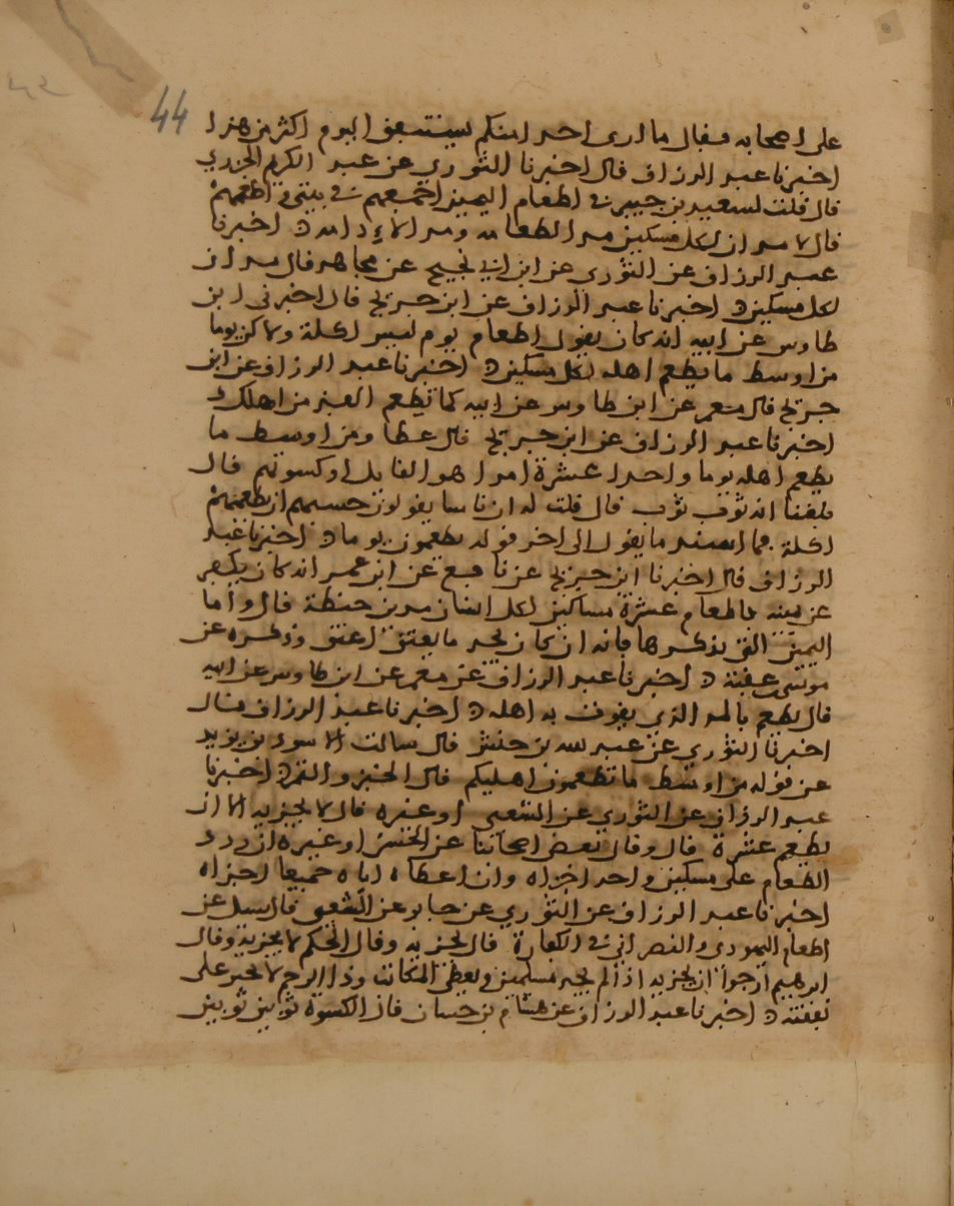 44
على اصحابه فقال ما ارى احدا منكم اليوم اكثر من هذا
اخبرنا عبد الرزاق قال اخبرنا الثوري عن عبد الكريم الجزري
قال قلت لسعيد بن جبير في اطعام اليمين اجمعهم في بيتي فاطعمهم
قال لا مدان لكل مسكين مد الطعامه ومد لادامه اخبرنا
عبد الرزاق عن الثوري عن ابن ابي نجيح عن مجاهد قال مدان
لكل مسكين اخبرنا عبد الرزاق عن ابن جريج قال اخبرني ابن
طاوس عن ابيه انه كان يقول اطعام يوم ليس اكلة ولاكن يوما
من اوسط ما يطعم اهله لكل مسكين اخبرنا عبد الرزاق عن ابن
جريج قال معمر عن ابن طاوس عن ابيه كما تطعم من اهلك
اخبرنا عبد الرزاق عن ابن جريج قال عطا ومن اوسط ما
يطعم اهله يوما واحدا عشرة امداد هو القايل او كسوتهم قال
بلغنا انه ثوب ثوب قال قلت له ان ناسا يقولون حسبهم ان يطعمهم
اكلة ما يقول الى اخر قوله يطعمون يوما اخبرنا عبد
الرزاق قال اخبرنا ابن جريج عن نافع عن ابن عمر انه كان يكفر
عن يمينه باطعام عشرة مساكين لكل انسان مد من حنطة قال واما
اليمين التي يذكرها فانه ان كان يجد ما يعتق اعتق وذكره عن
موسى بن عقبة اخبرنا عبد الرزاق عن معمر عن ابن طاوس عن ابيه
قال يطعم بالمد الذي يقوت به اهله اخبرنا عبد الرزاق قال
اخبرنا الثوري عن عبد الله بن حنش قال سالت الاسود بن يزيد
عن قوله من اوسط ما تطعمون اهليكم قال الخبز والتمر اخبرنا
عبد الرزاق عن الثوري عن الشعبي او غيره قال لا يجزيه الا ان
يطعم عشرة قال وقال بعض اصحابنا عن الحسن او غيره ان ردد
الطعام على مسكين واحد اجزاه وان اعطاه اياه جميعا اجزاه
اخبرنا عبد الرزاق عن الثوري عن جابر عن الشعبي قال سيل عن
اطعام اليهودي والنصراني في الكفارة قال يجزيه وقال الحكم لا يجزيه وقال
ابرهيم ارجوا ان يجزيه اذا لم يجد مسلمين ويعطي المكاتب وذا الرحم لا يجبر على
نفقته اخبرنا عبد الرزاق عن هشام بن حسان قال الكسوة ثوبين ثوبين